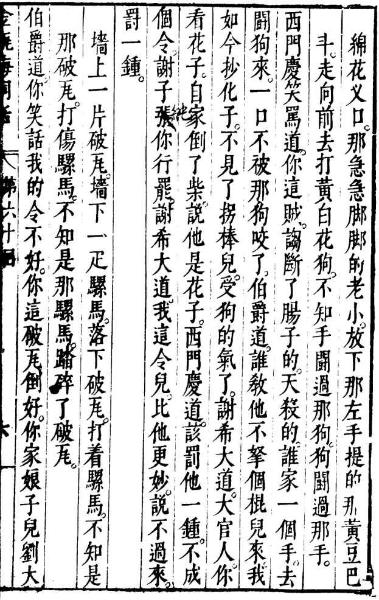 綿花叉口。那急急脚脚的老小。放下那左手提的那黃豆巴
斗。走向前去打黃白花狗。不知手鬪過那狗。狗鬪過那手。
西門慶笑罵道。你這賊謅斷了腸子的。天殺的。誰家一個手。去
鬪狗來。一口不被那狗咬了。伯爵道。誰敎他不拏個棍兒來。我
如今抄化子。不見了拐棒兒。受狗的氣了。謝希大道。大官人。你
看花子自家倒了柴。說他是花子。西門慶道。該罰他一鍾。不成
個令。謝子張。你行罷。謝希大道。我這令兒比他更妙。說不過來。
罰一鍾。
墻上一片破瓦。墻下一疋騾馬。落下破瓦。打着騾馬。不知是
那破瓦。打傷騾馬。不知是那騾馬。踏碎了破瓦。
伯爵道。你笑話我的令不好。你這破瓦倒好。你家娘子兒劉大
金瓶梅詞話 第六十回 六